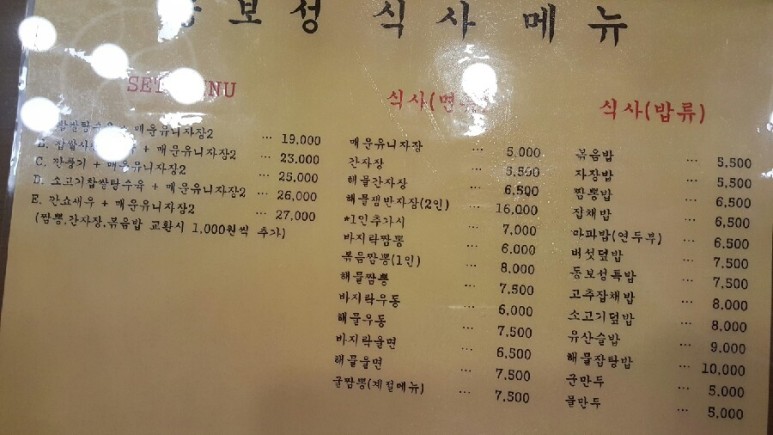 보성 식사 메뉴
SET
+ 매운유니자장2 ... 19,000
+ 매운유니자장2 ... 23,000
C. 깐풍기 + 매운유니자장2 ... 25,000
D. 소고기찹쌀탕수육 + 매운유니자장2 ... 26,000
E. 깐쇼새우 + 매운유니자장2 ... 27,000
(짬뽕,간자장,볶음밥 교환시 1,000원씩 추가)
식사(면
매운유니자장 ... 5,000
간자장 ... 5,500
해물간자장 ... 6,500
해물쟁반자장(2인) ... 16,000
*1인추가시 ... 7,000
바지락짬뽕 ... 6,000
볶음짬뽕(1인) ... 8,000
해물짬뽕 ... 7,500
바지락우동 ... 6,000
해물우동 ... 7,500
바지락울면 ... 6,500
해물울면 ... 7,500
굴짬뽕(계절메뉴) ... 7,500
식사(밥류)
볶음밥 ... 5,500
자장밥 ... 5,500
짬뽕밥 ... 6,500
잡채밥 ... 6,500
마파밥(연두부) ... 6,500
버섯덮밥 ... 7,500
동보성특밥 ... 7,500
고추잡채밥 ... 8,000
소고기덮밥 ... 8,000
유산슬밥 ... 9,000
해물잡탕밥 ... 10,000
군만두 ... 5,000
물만두 ... 5,000